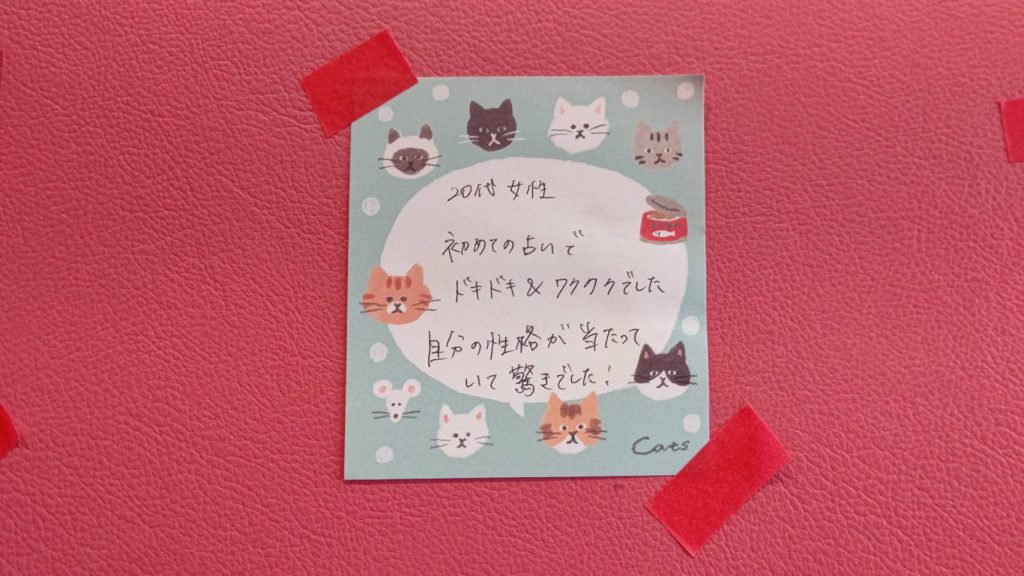 20代 女性
初めての占いで
ドキドキ & ワクワクでした
自分の性格が 当たって
いて 驚きでした!
Cats